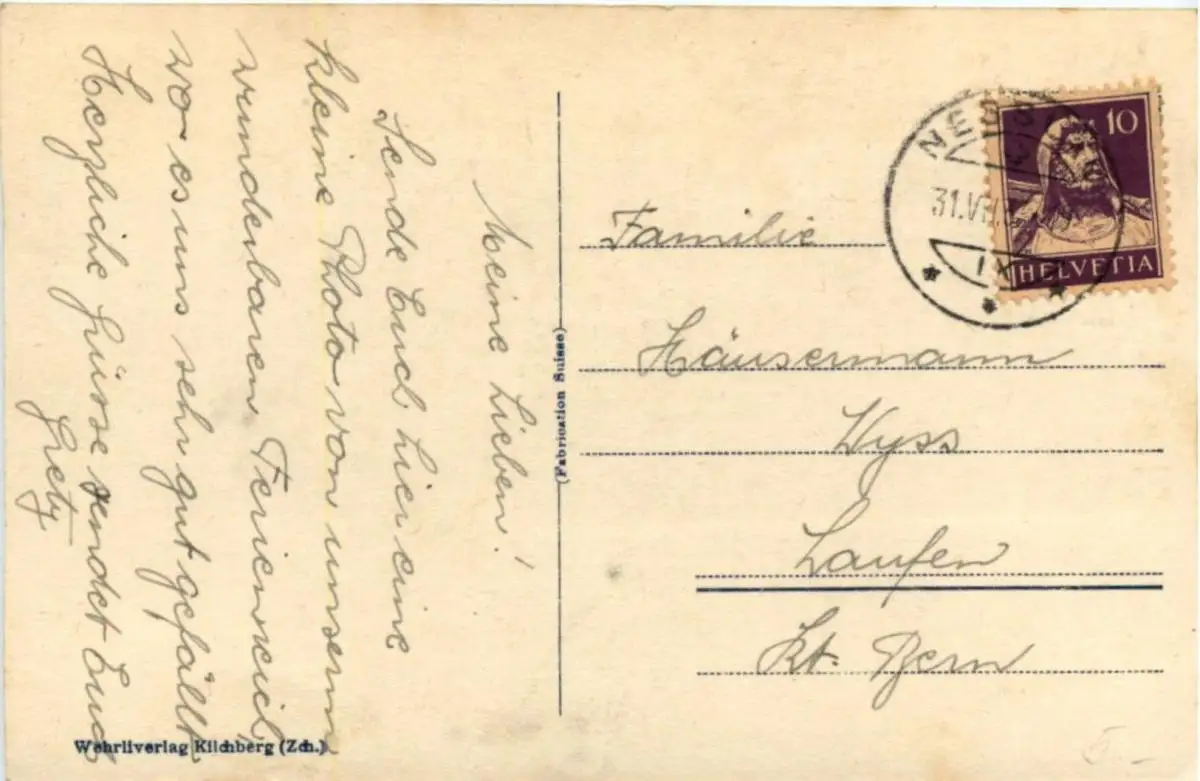 Meine Lieben!
Sende Euch hier eine
kleine Photo von unserm
wunderbaren Ferienneich,
wo es uns sehr gut gefällt
Herzliche Grüsse sendet Euch
Grety
(Fabrication Suisse)
Wehrliverlag Kilchberg (Zch.)
10
HELVETIA
31.VII.
IX
Familie
Häusermann
Wyss
Laufen
Kt. Bern
5.-